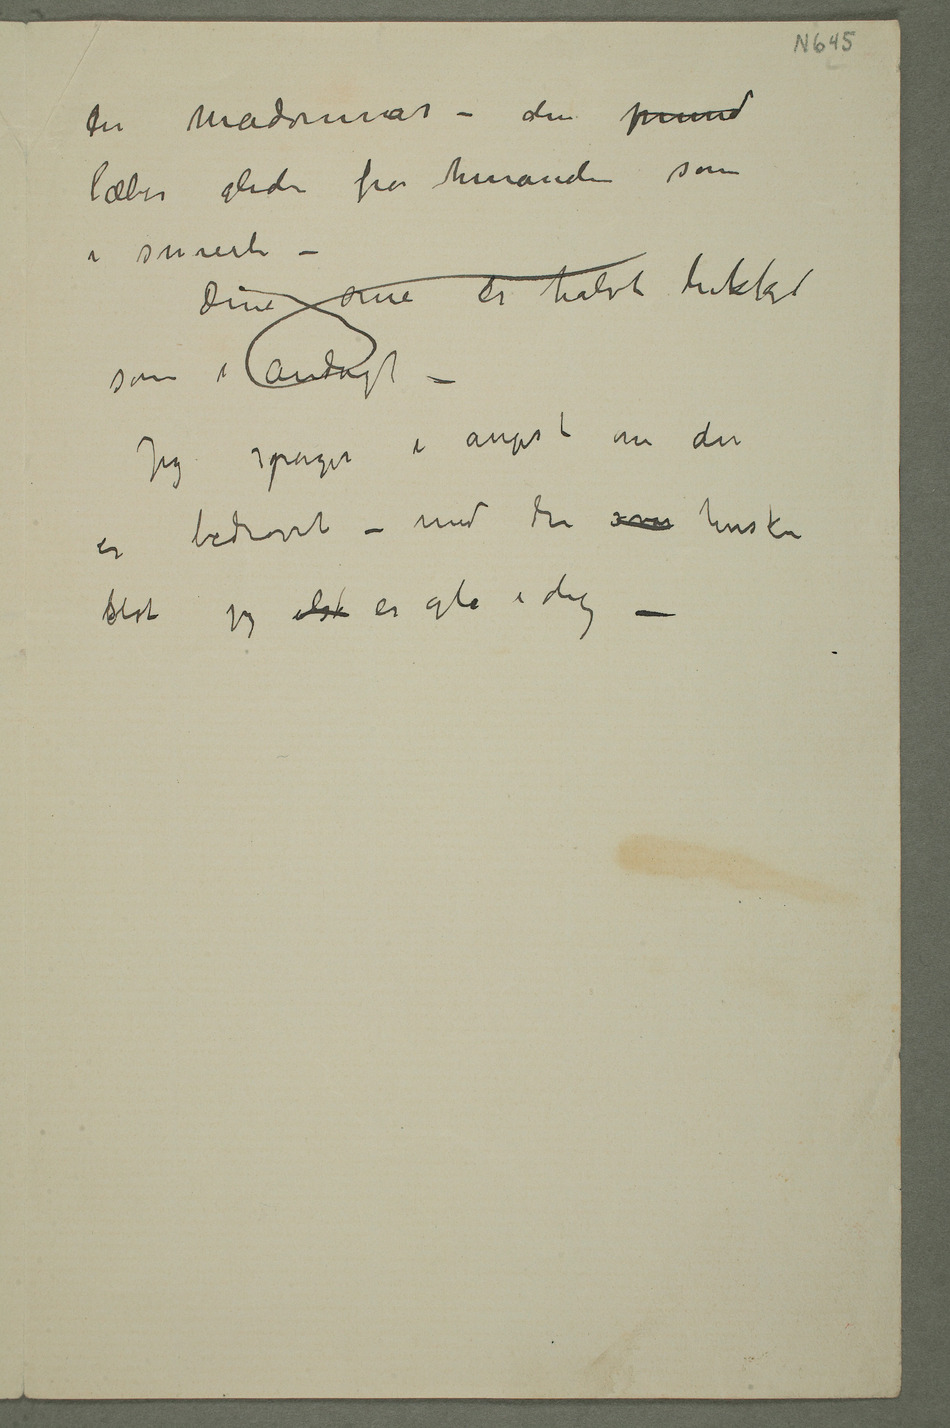 N645
en Madonnas – din mund
læber glider fra hinanden som
i smerte –
Dine øine er halvt lukket
som i andagt –
Jeg spørger i angst om du
er bedrøvet – med du hvisker
blot jeg elsk er gla i dig —